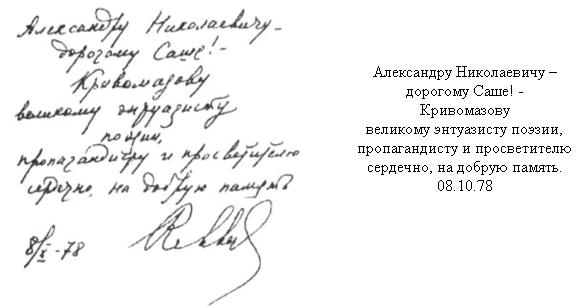 Александру Николаевичу –
дорогому Саше! -
Кривомазову
великому энтузиасту
поэзии,
пропагандисту и просветителю
сердечно, на добрую память
8/X - 78
Александру Николаевичу –
дорогому Саше! -
Кривомазову
великому энтузиасту поэзии,
пропагандисту и просветителю
сердечно, на добрую память.
08.10.78